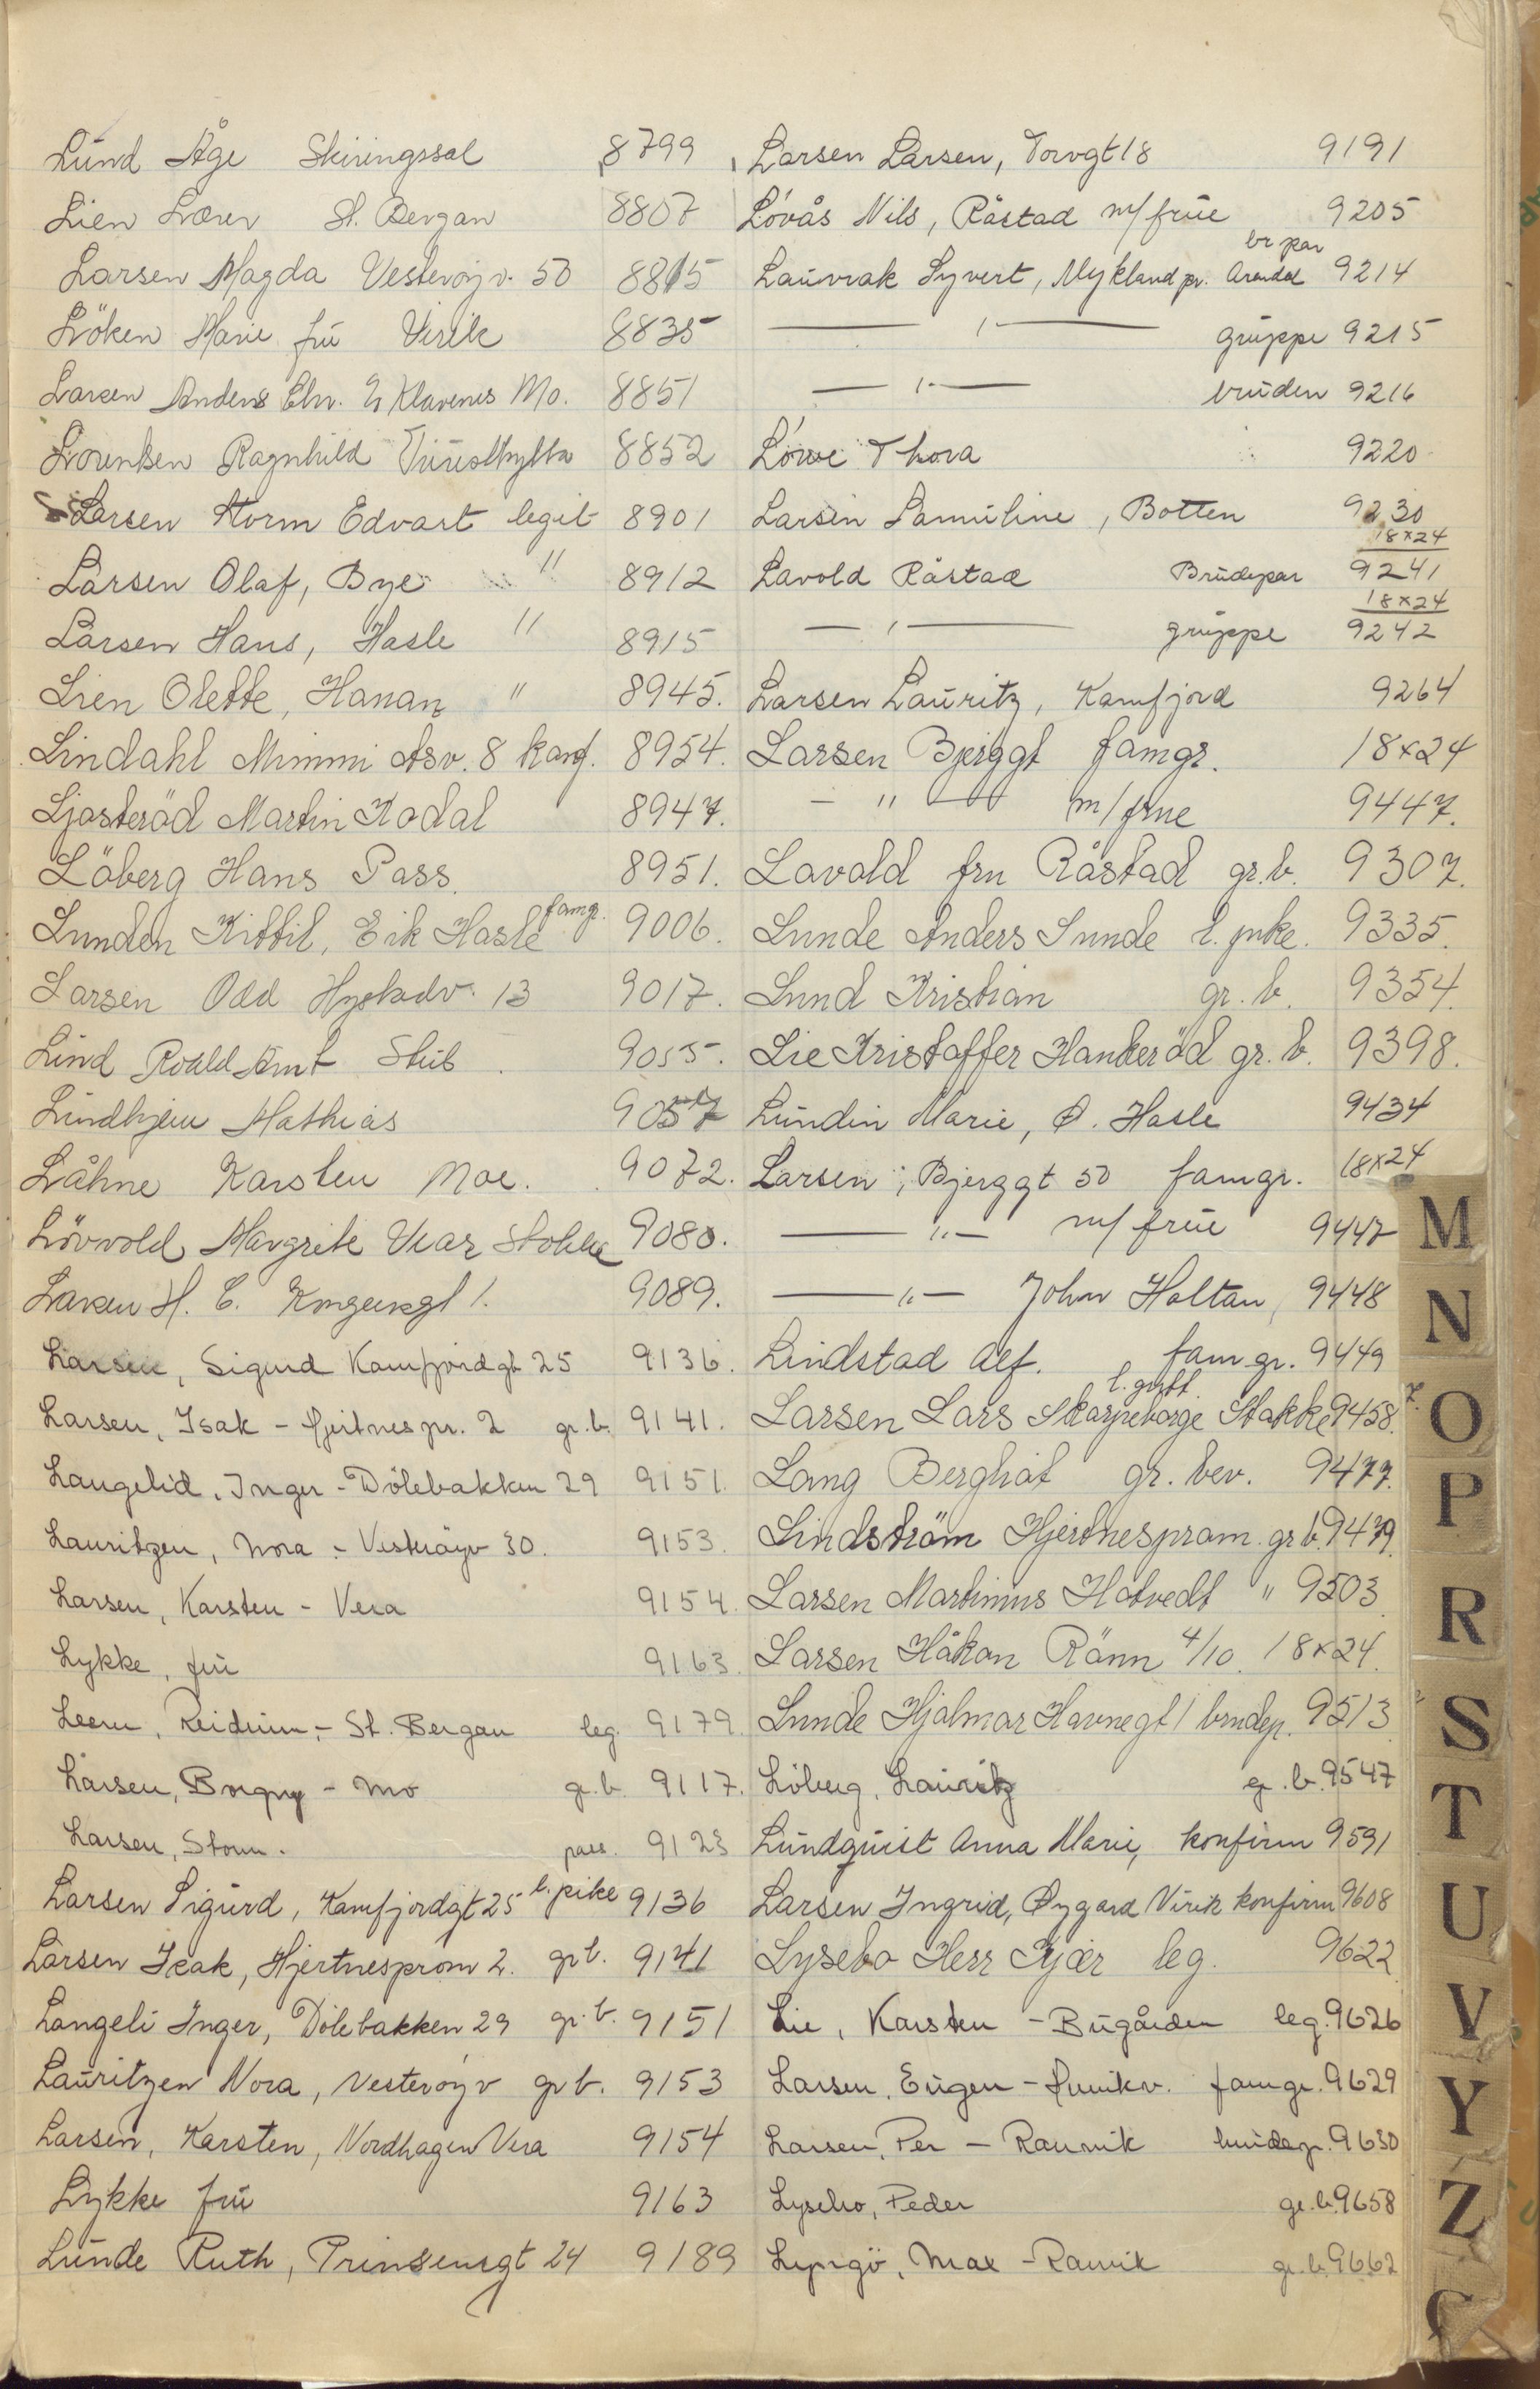 Lund Åge Skiringssal 8799
Lien Lærer St. Bergan 8807
Larsen Magda Vesterøyv. 50 8815
Löken Marie frü Virik 8835
Larsen Anders Klavenes Mo. 8851
Lorentsen Ragnhild 8852
Larsen Storm Edvart legit 8901
Larsen Olaf, Bye " 8912
Larsen Hans, Hasle " 8915
Lien Olette, Hanan " 8945.
Lindahl Mimmi Asv. 8 kamf. 8954.
Ljosteröd Martin Kodal 8947.
Löberg Hans Pass. 8951.
Lunden Kittil, Eik Hasle famgr. 9006.
Larsen Odd 13 9017.
Lind Roald Amt Stub 9055.
Lindhjem Mathias 9057
Låhne Karsten Moe. 9072.
Lövvold Margrete Vear Stokke 9080.
Larsen H. C. Kongensgt 1. 9089.
Larsen, Sigurd Kamfjordgt 25 9136.
Larsen, Isak - Hjertnespr. 2 gr.b. 9141.
Langelid, Inger - Dölebakken 29 9151
Lauritzen, Nora - Vesteröyv 30. 9153.
Larsen, Karsten - Vera 9154.
Lykke, frü 9163.
Reidunn - St. Bergan leg. 9179
Larsen, Borgny - Mo gr.b. 9117.
Larsen, Storm. pass. 9123
Larsen Sigurd, Kamfjordgt 25 l. pike 9136
Larsen Isak, Hjertnesprom 2. gr b. 9141
Langeli Inger, Dölebakken 29 gr. b. 9151
Lauritzen Nora, Vesterøyv gr b. 9153
Larsen, Karsten, Nordhagen Vera 9154
Lykke frü 9163
Lunde Ruth, Prinsensgt 24 9189
Larsen Larsen, Torvgt 18 9191
Lövås Nils, Råstad m/früe 9205
br par
Lauvrak Syvert, Mykland pr. Arendal 9214
— " — gruppe 9215
— " — bruden 9216
Löwe Thora 9220
Larsen Samuline, Botten 9230
18×24
Lavold Råstad Brudepar 9241
18×24
— " — gruppe 9242
Larsen Lauritz, Kamfjord 9264
Larsen Bjerggt famgr. 18×24
— " — m/frue 9447.
Lavold fru Råstad gr.b. 9307.
Lunde Anders Sunde l. pike. 9335.
Lund Kristian gr. b. 9354.
Lie Kristoffer Hankeröd gr. b. 9398.
Lundin Marie, Ø. Hasle 9434
Larsen, Bjerggt 50 famgr. 18×24
— " — m/früe 9447
— " — John Holtan, 9448
Lindstad Alf. fam gr. 9449
l. gutt.
Larsen Lars Skarpeborge Stokke 9458.
Lang Bergliot gr. bev. 9477.
Lindström Hjertnesprom. gr b. 9479.
Larsen Martinius Hotvedt " 9503
Larsen Håkon Rönn 4/10. 18×24.
Lunde Hjalmar Havnegt 1 brudep. 9513
Löberg, Lauritz gr. b. 9547
Lundquist Anna Marie, konfirm 9591
Larsen Ingrid, Øygard Virik konfirm 9608
Lysebo Herr Kjær leg. 9622
Lie, Karsten - Bugården leg. 9626
Larsen, Eugen - famgr. 9629
Larsen, Per - Ranvik brudepr. 9630
Lysebo, Peder gr. b. 9658
Lyngö, Max - Ranvik gr. b. 9662
M
N
O
P
R
S
T
U
V
Y
Z